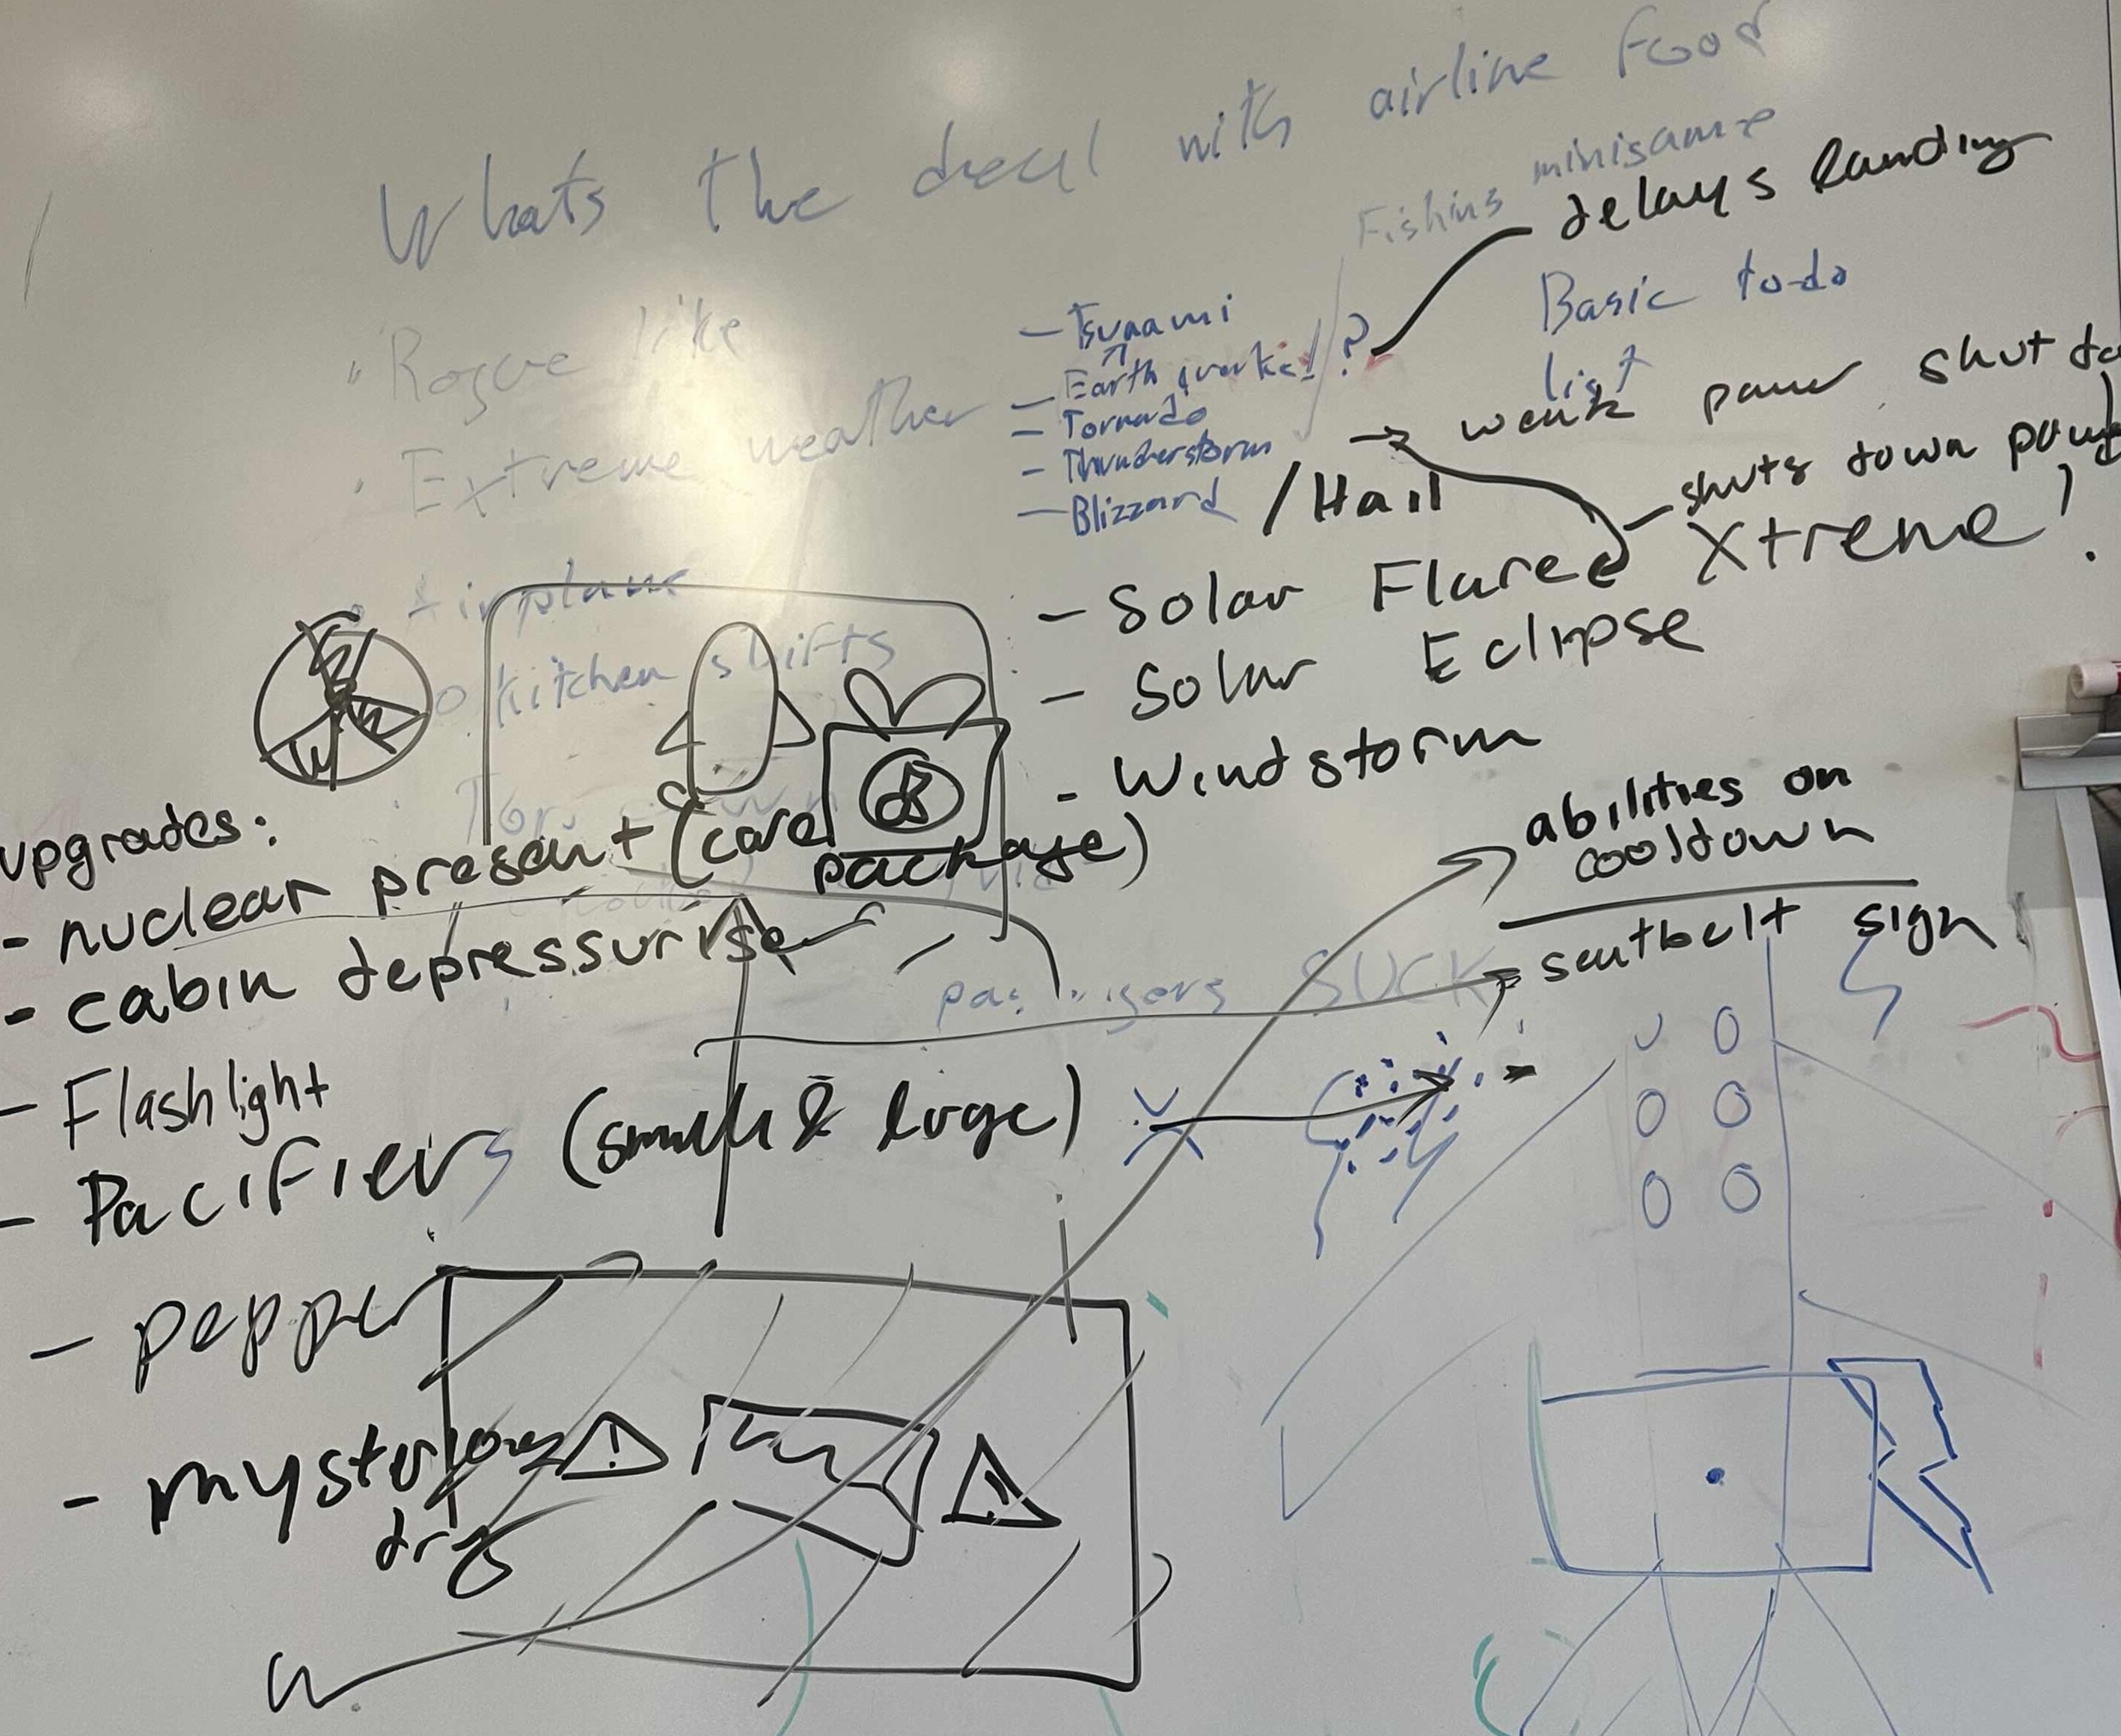 Whats the deal with airline food
Fishing minigame
delays landing
Basic to-do
list
- Tsunami
- Earth quake!!?
- Tornado
- Thunderstorm
- Blizzard / Hail
→ weak power shut do
- shuts down pow
Xtreme!
- Solar Flare
- Solar Eclipse
- Windstorm
Rogue like
Extreme weather
Airplane
kitchen shifts
upgrades:
- nuclear present (care package)
- cabin depressurise
- Flashlight
- Pacifiers (small & large)
- pepper
- mysterious
drug
abilities on
cooldown
seatbelt sign
SUCK